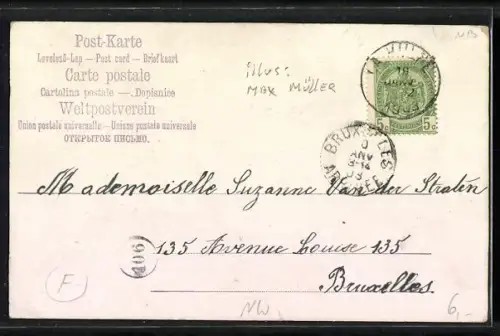 Post-Karte
Levelező-Lap — Post card — Briefkaart
Carte postale
Cartolina postale — Dopisnice
Weltpostverein
Union postale universelle — Unione postale universale
ОТКРЫТОЕ ПИСЬМО.
illus:
Max Müller
5c 5c
BRUXELLES
8-14
Mademoiselle Suzanne Van der Straten
135 Avenue Louise 135
Bruxelles.
106
F
6,-